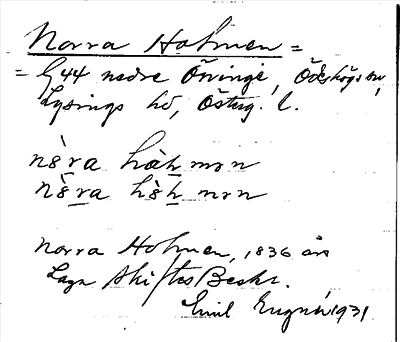 Norra Holmen =
= G 44 nedre Öringe, Ödeshögs sn,
Lysings hd, Österg. l.
nὲra hàh mɘn
nὲra hὲh mɘn
Norra Holmen, 1836 års
Laga Skiftes Beskr.
Emil 1931